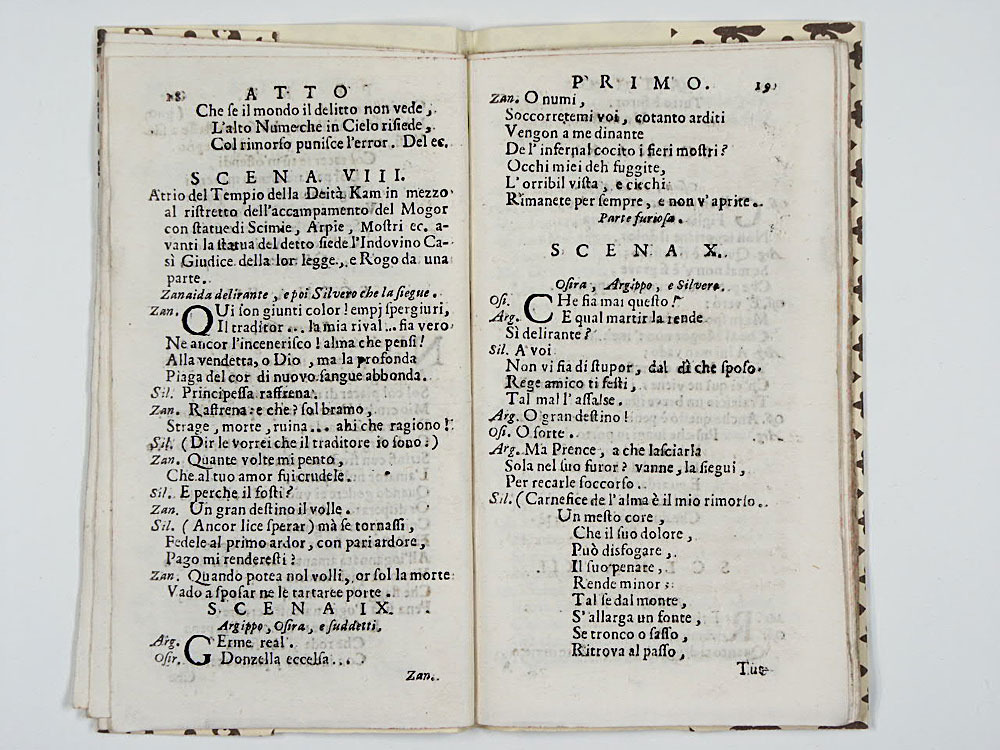 18 ATTO
Che se il mondo il delitto non vede,
L'alto Nume che in Cielo risiede,
Col rimorso punisce l'error. Del ec.
SCENA VIII.
Atrio del Tempio della Deità Kam in mezzo
al ristretto dell'accampamento del Mogor
con statue di Scimie, Arpie, Mostri ec. a-
vanti la statua del detto siede l'Indovino Ca-
sì Giudice della lor legge, e Rogo da una
parte.
Zanaida delirante, e poi Silvero che la siegue.
Zan. QUi son giunti color! empj spergiuri,
Il traditor... la mia rival... fia vero
Ne ancor l'incenerisco! alma che pensi!
Alla vendetta, o Dio, ma la profonda
Piaga del cor di nuovo sangue abbonda.
Sil. Principessa raffrena.
Zan. Raffrena: e che? sol bramo,
Strage, morte, ruina... ahi che ragiono!
Sil. (Dir le vorrei che il traditore io sono.)
Zan. Quante volte mi pento,
Che al tuo amor fui crudele.
Sil. E perche il fosti?
Zan. Un gran destino il volle.
Sil. (Ancor lice sperar) mà se tornassi,
Fedele al primo ardor, con pari ardore,
Pago mi renderesti?
Zan. Quando potea nol volli, or sol la morte
Vado a sposar ne le tartaree porte.
SCENA IX.
Argippo, Osira, e suddetti,
Arg. GErme real.
Osir. Donzella eccelsa...
Zan.
PRIMO. 19
Zan. O numi,
Soccorretemi voi, cotanto arditi
Vengon a me dinante
De l'infernal cocito i fieri mostri?
Occhi miei deh fuggite,
L'orribil vista, e ciechi
Rimanete per sempre, e non v'aprite.
Parte furiosa.
SCENA X.
Osira, Argippo, e Silvero.
Osi. CHe fia mai questo!
Arg. E qual martir la rende
Sì delirante?
Sil. A voi
Non vi fia di stupor, dal dì che sposo
Rege amico ti festi,
Tal mal l'assalse.
Arg. O gran destino!
Osi. O sorte.
Arg. Ma Prence, a che lasciarla
Sola nel suo furor? vanne, la siegui,
Per recarle soccorso.
Sil. (Carnefice de l'alma è il mio rimorso.
Un mesto core,
Che il suo dolore,
Può disfogare,
Il suo penare,
Rende minor:
Tal se dal monte,
S'allarga un fonte,
Se tronco o sasso,
Ritrova al passo,
Tut-